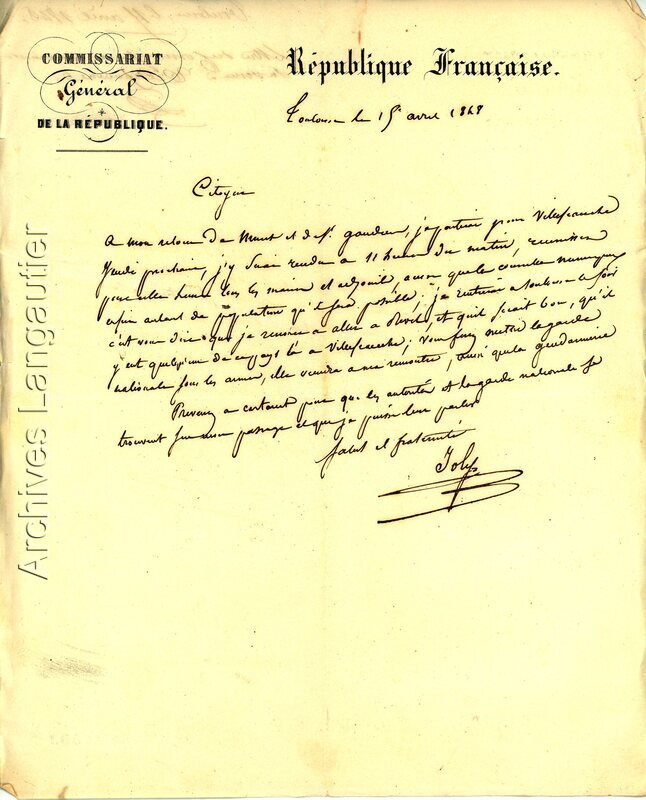 COMMISSARIAT
Général
DE LA RÉPUBLIQUE.
République Française.
Toulouse le 15 avril 1848
Citoyen
a mon retour de Muret et de St gaudens, je partirai pour Villefranche
Jeudi prochain, j'y serai rendu a 11 heures du matin, reunissez
pour cette heure tous les maires et adjoints, aussi que le comites
enfin autant de population qu'il sera possible, je rentrerai a toulouse le soir
c'est vous dire que je renonce a aller a Revel, et qu'il serait bon, qu'il
y eut quelqu'un de ce pays là a Villefranche; vous ferez mettre la garde
nationale sous les armes, elle viendra a ma rencontre, ainsi que la gendarmerie
Prevenez a pour que les autorités et la garde nationale se
trouvent sur mon passage et que je puisse leur parler
salut et fraternité
Joly
Archives Langautier